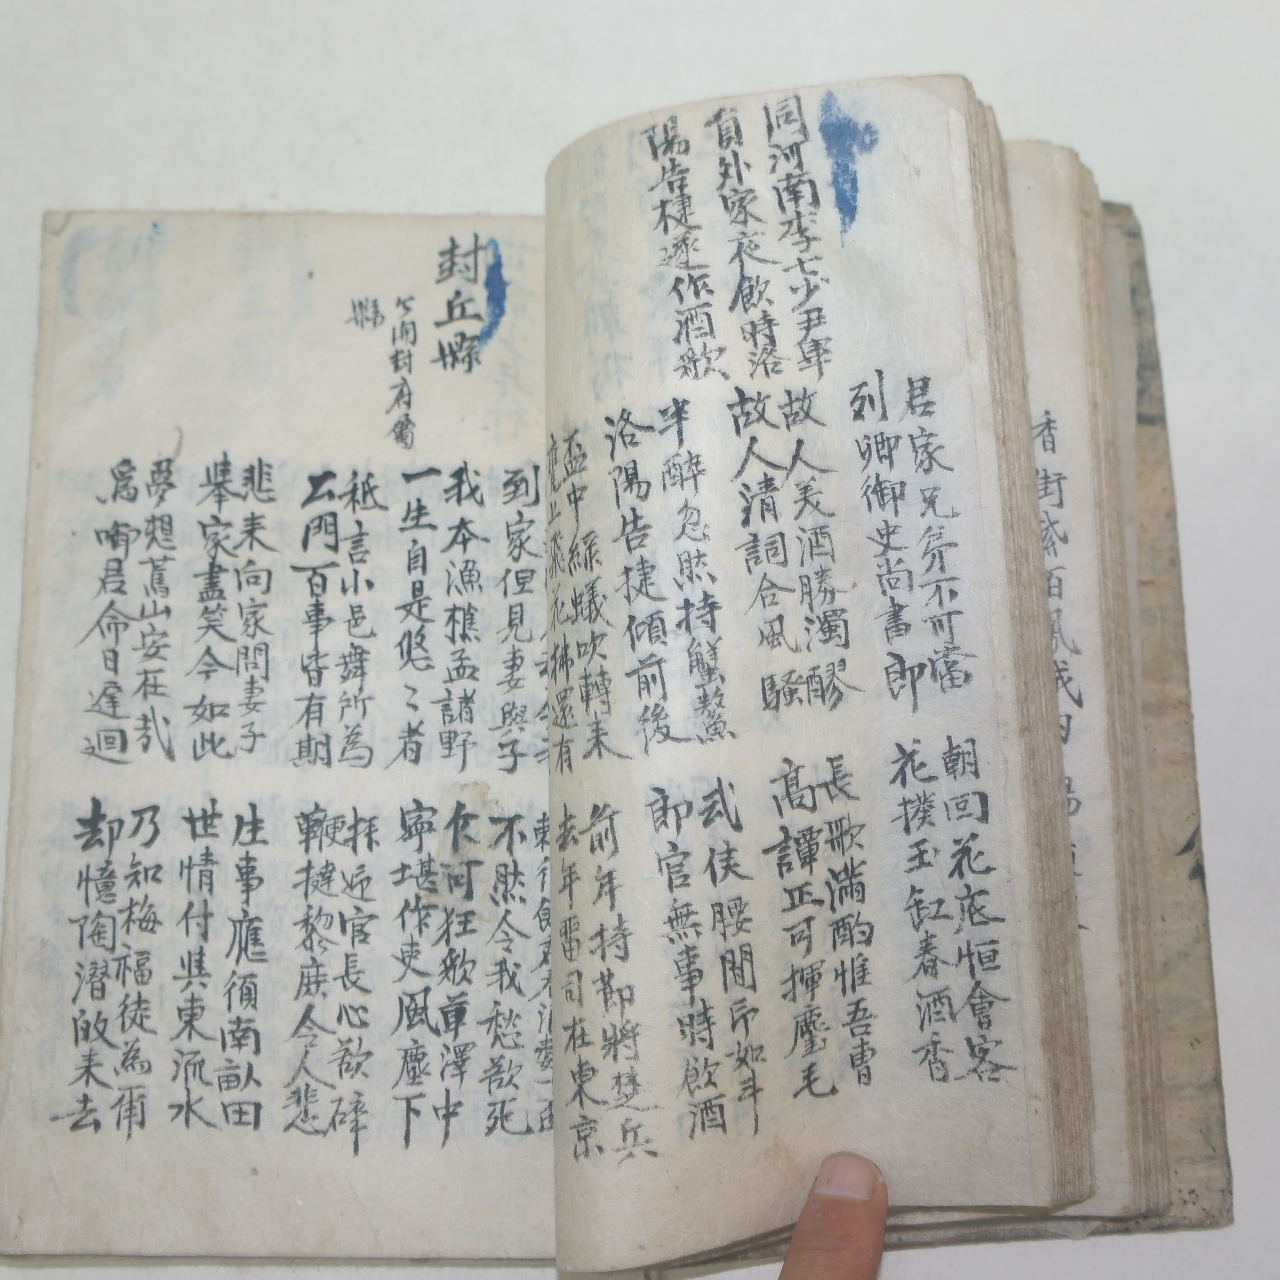 同河南李七少尹畢
員外家夜飲時洛
陽告捷遂作酒歌
君家兄弟不可當
列卿御史尚書郎
朝回花底恒會客
花撲玉缸春酒香
故人美酒勝濁醪
故人清詞合風騷
長歌滿酌惟吾曹
高譚正可揮麈毛
半醉忽然持蟹螯
洛陽告捷傾前後
武侯腰間印如斗
郎官無事時飲酒
盃中綠蟻吹轉來
甕上飛花拂還有
前年持節將楚兵
去年留司在東京
到家但見妻與子
不然令我愁欲死
封丘縣
今開封府屬
縣
我本漁樵孟諸野
一生自是悠〻者
乍可狂歌草澤中
寧堪作吏風塵下
秪言小邑無所為
公門百事皆有期
拜迎官長心欲碎
鞭撻黎庶令人悲
悲来向家問妻子
舉家盡笑今如此
生事應須南畝田
世情付與東流水
夢想舊山安在哉
為啣君命日遲迴
乃知梅福徒為爾
却憶陶潛故来去